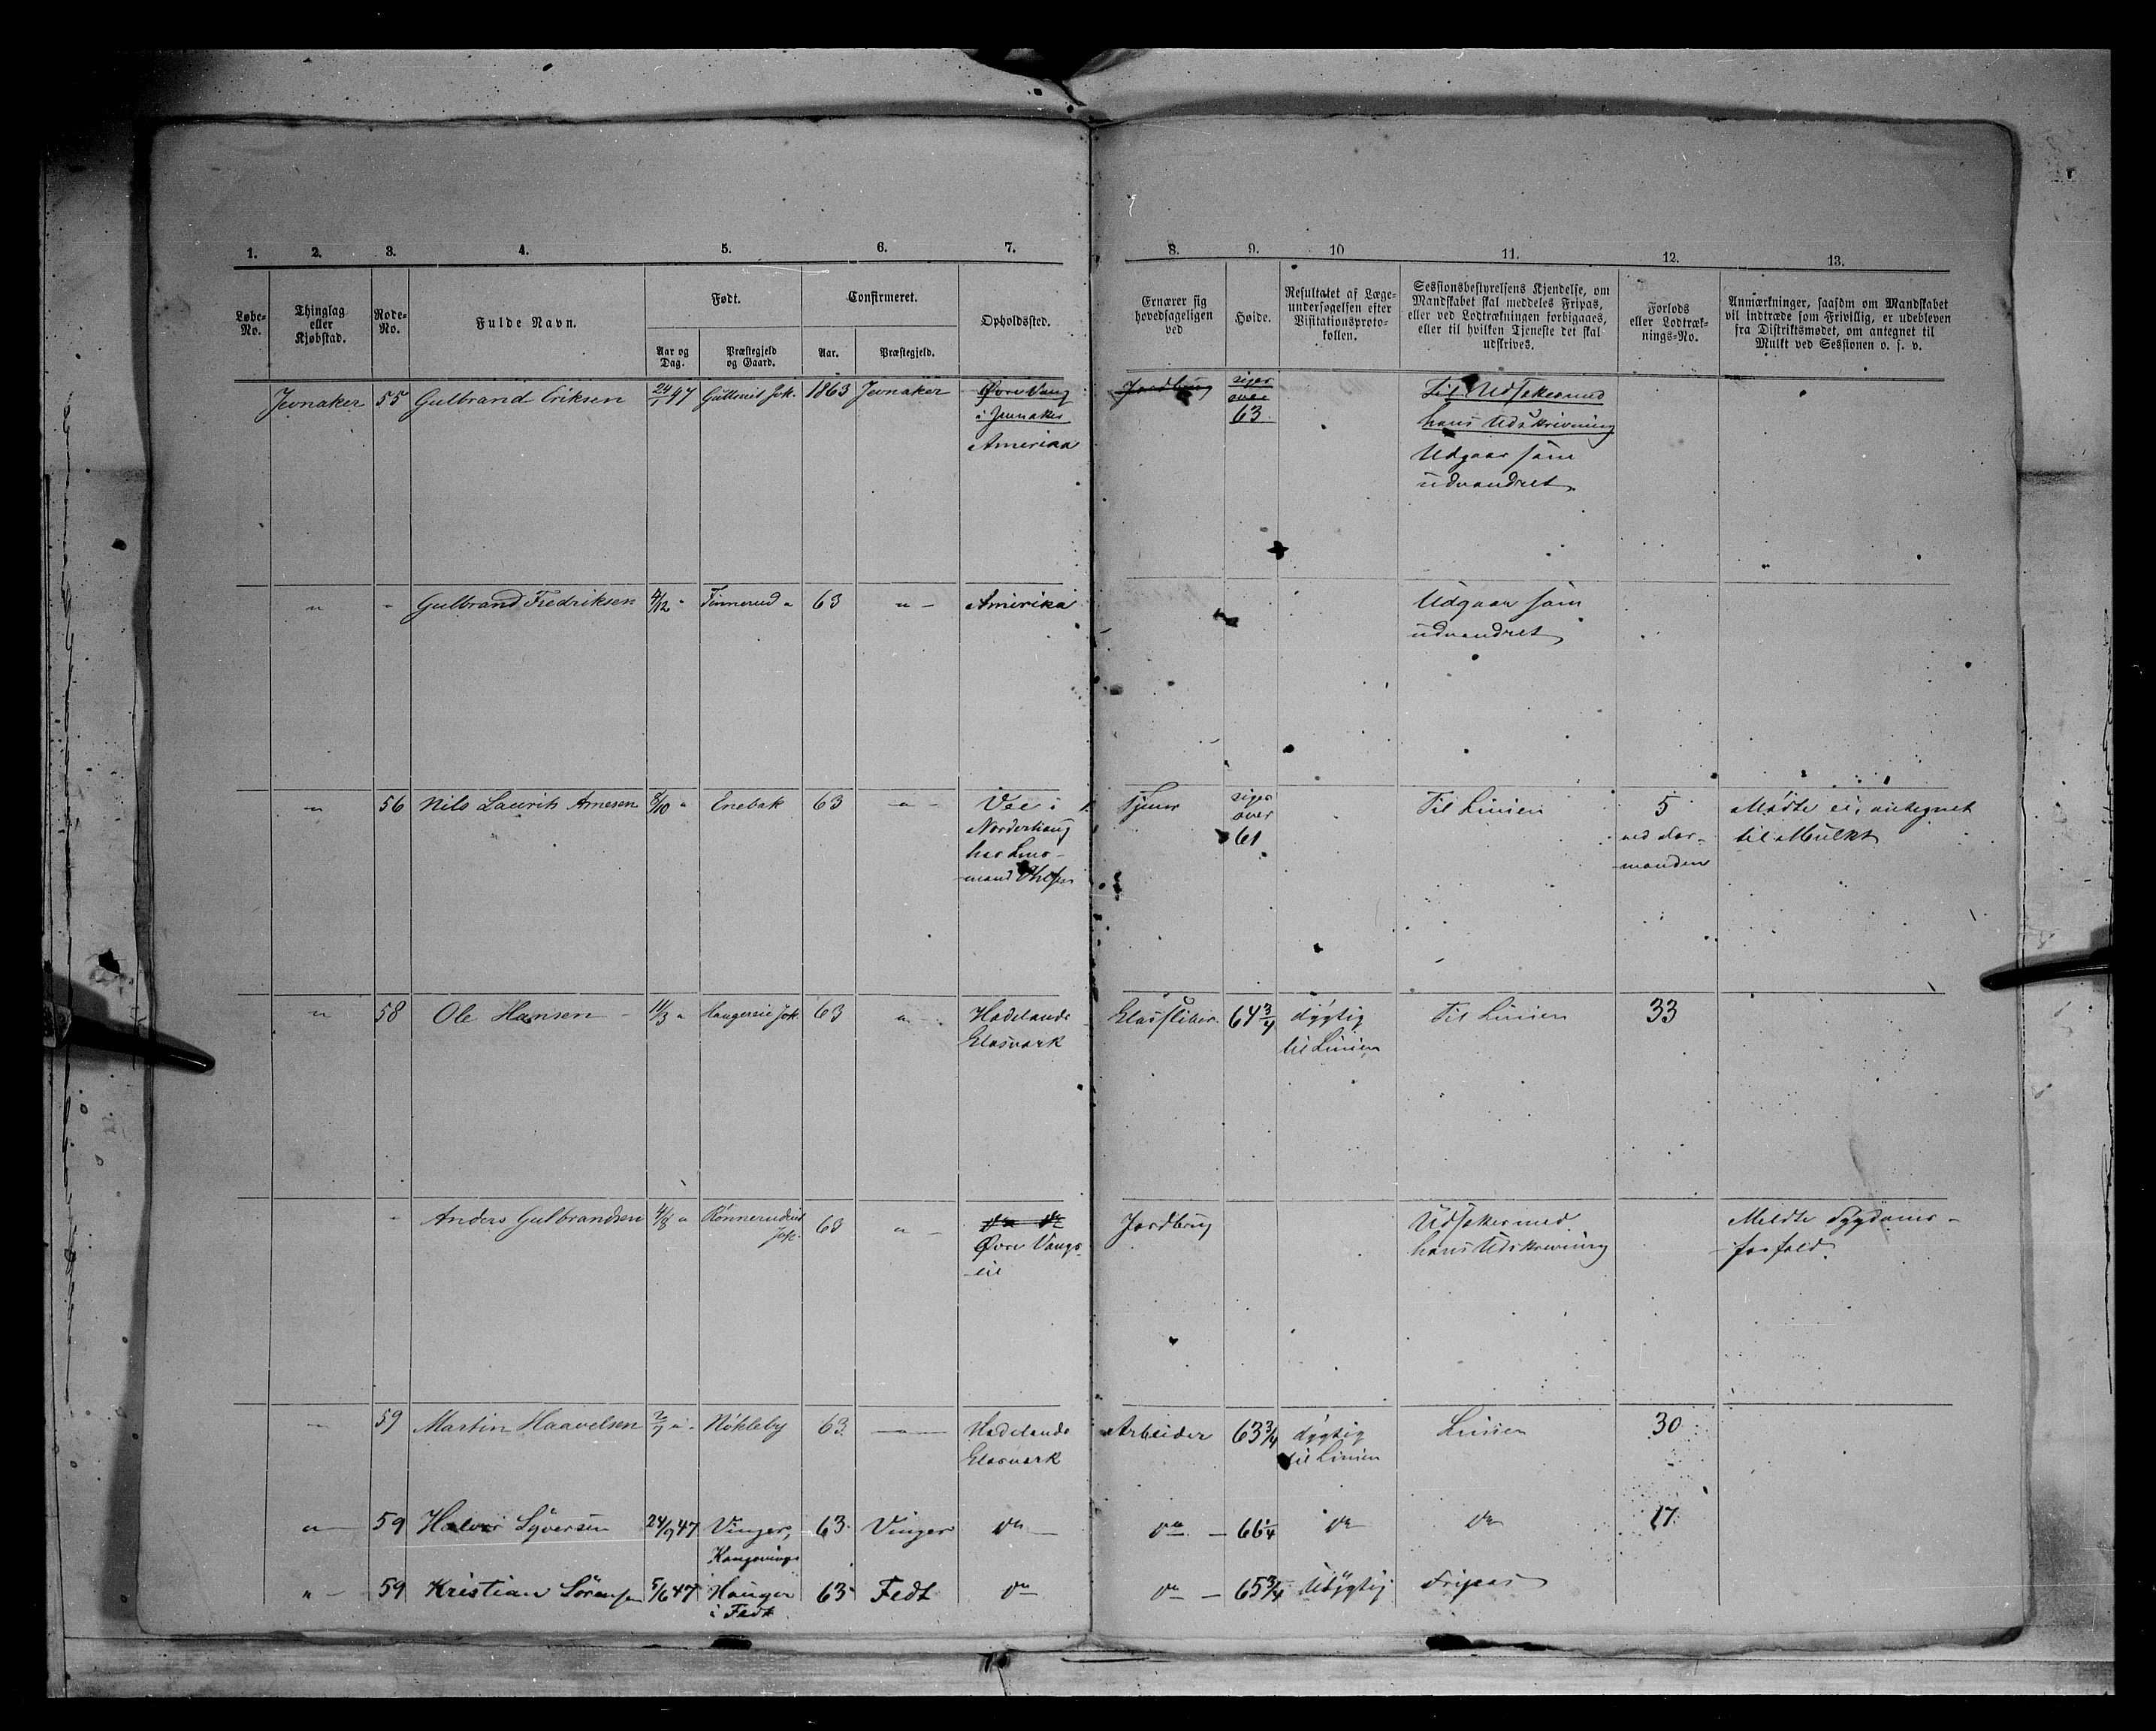 1. 2. 3. 4. 5. 6. 7. 8. 9. 10 11. 12. 13.
Løbe-No.
Thinglag eller Kjøbstad.
Rode-No.
Fulde Navn.
Født.
Aar og Dag.
Præstegjeld og Gaard.
Confirmeret.
Aar.
Præstegjeld.
Opholdssted.
Ernærer sig hovedsageligen ved
Høide.
Resultatet af Læge-undersøgelsen efter Visitationsproto-kollen.
Sessionsbestyrelsens Kjendelse, om Mandskabet skal meddeles Fripas, eller ved Lodtrækningen forbigaaes, eller til hvilken Tjeneste det skal udskrives.
Forlods eller Lodtræk-nings-No.
Anmærkninger, saasom om Mandskabet vil indtræde som Frivillig, er udebleven fra Distriktsmødet, om antegnet til Mulkt ved Sessionen o. s. v.
Jevnaker 55 Gulbrand Eriksen 24/1 47 Jok. 1863 Jevnaker Øvre Vang Jordbrug siges Til Udsættes med
i Jevnaker over hans Udskrivning
Amerika 63 Udgaar som
udvandret
" " Gulbrand Fredriksen 4/12 " Tinnerud " 63 " Amerika Udgaar som
udvandret
" 56 Nils Laurits Arnesen 8/10 " Enebak 63 " Vee i Tjener siges Til Linien 5 Mødte ei, antegnet
Norderhaug over ved For- til Mulkt
hos Lens- 61 manden
mand
" 58 Ole Hansen 11/3 " Haugerseie Jok. 63 " Hadelands Glassliber 64 3/4 dygtig Til Linien 33
Glasværk til Linien
" Anders Gulbrandsen 4/8 " Jok. 63 " Do Do Jordbrug Udsættes med Meldte Sygdoms-
Øvre Vangs- hans Udskrivning forfald.
eie
" 59 Martin Haavelsen 2/7 " Nøkleby 63 " Hadelands Arbeider 63 3/4 dygtig Linien 30
Glasværk til Linien
" 59 Halvor Syversen 24/9 47 Vinger, 63 Vinger Do Do 66 1/4 Do Do 17
Kongsvinger
" 59 Kristian Sörensen 5/6 47 Hauger 63 Fedt Do Do 65 3/4 Udygtig Fripas
i Fedt